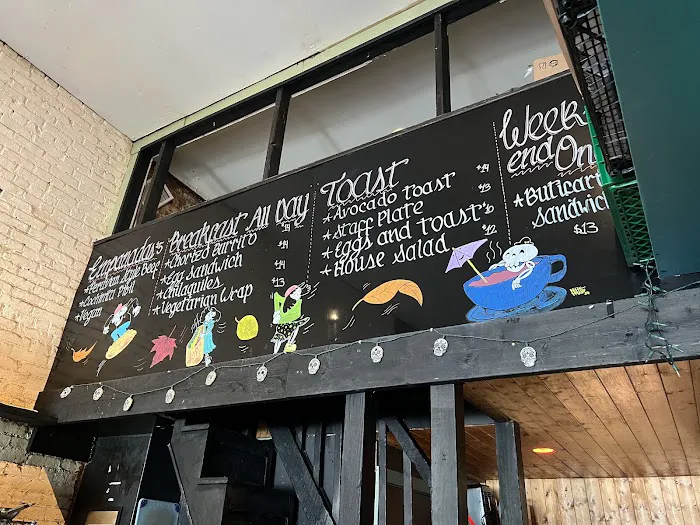 Empanadas $5
* Peruvian Style Beef
* Cochinita Pibil
* Vegan
Breakfast All Day
* Chorizo Burrito $14
* Egg Sandwich $14
* Chilaquiles $14
* Vegetarian Wrap $13
Toast
* Avocado Toast $14
* Staff Plate $13
* Eggs and Toast $10
* House Salad $12
Week
end On
* Buticar
Sandwich
$13